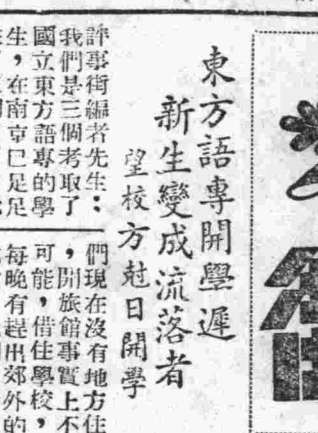 東方語專開學遲
新生變成流落者
望校方尅日開學
評事街編者先生：
我們是三個考取了
國立東方語專的學
生，在南京已足足
們現在沒有地方住
，開旅館事實上不
可能，借住學校，
每晚有趕出郊外的